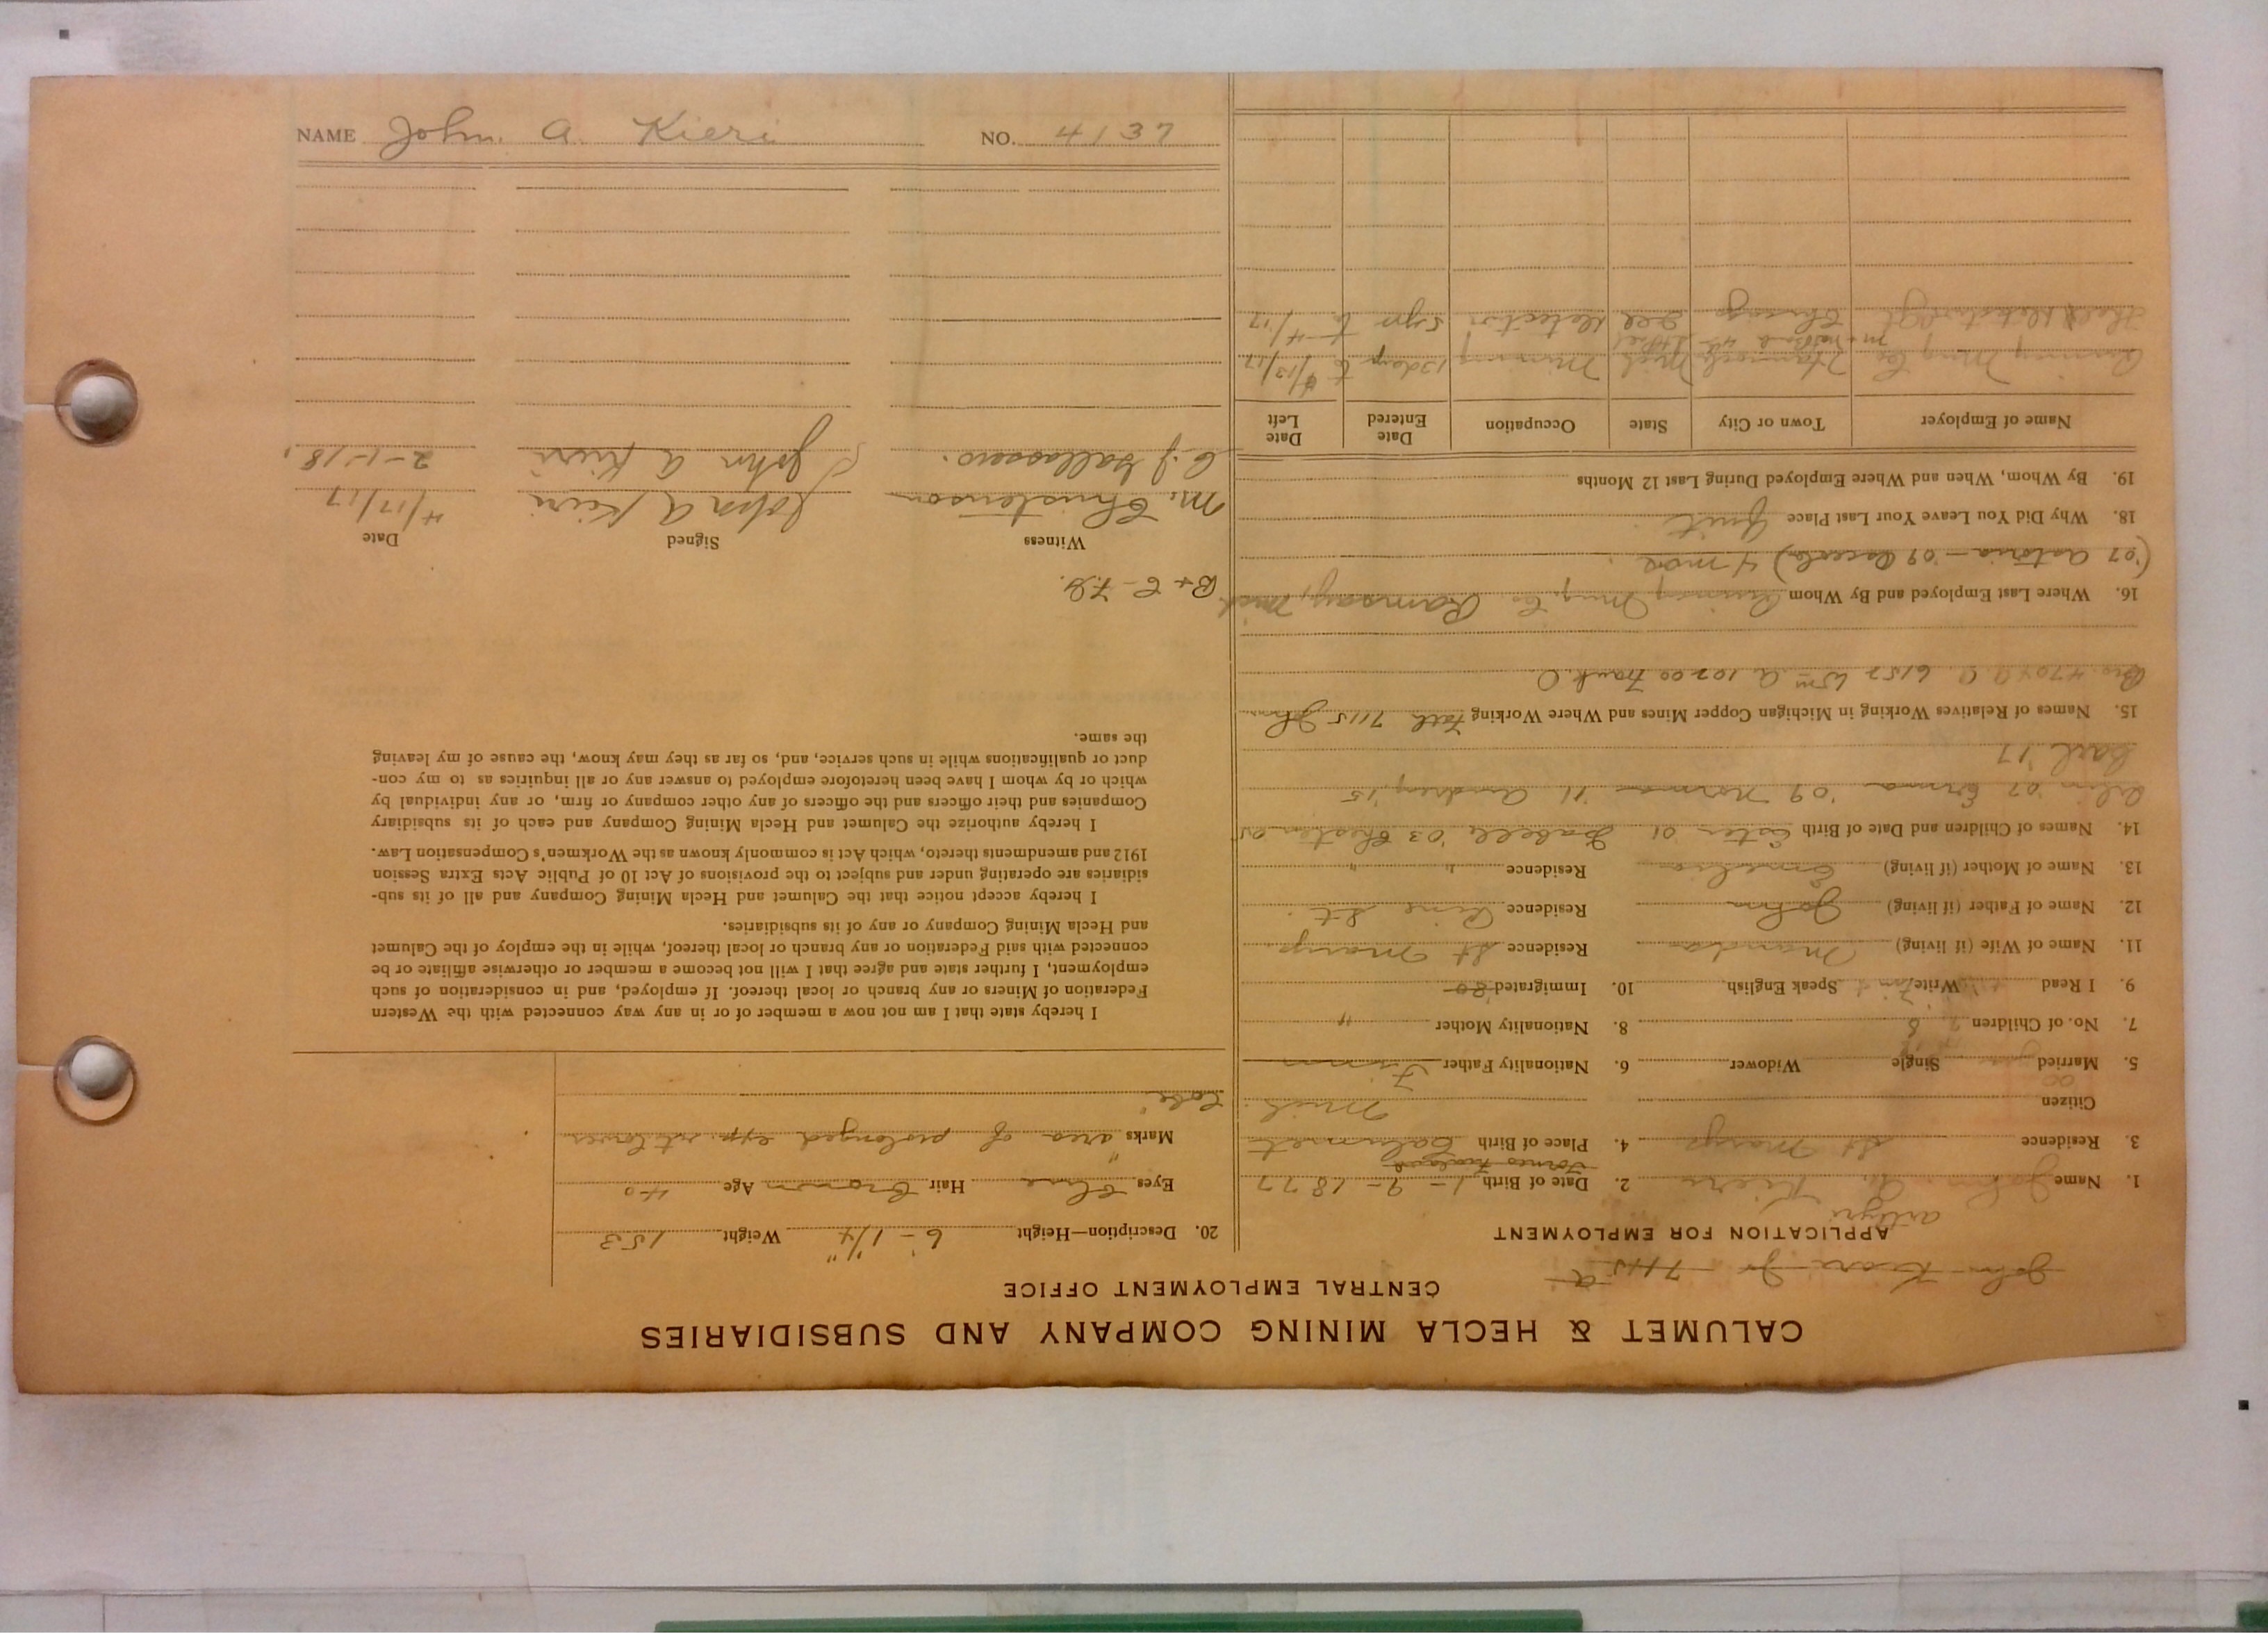 NAME John. A. Kieri NO. 4137
CALUMET & HECLA MINING COMPANY AND SUBSIDIARIES
CENTRAL EMPLOYMENT OFFICE
John Kiari Jr 7115 a
APPLICATION FOR EMPLOYMENT
1. Name John. A. Kieri 2. Date of Birth 1-9-1877
3. Residence St Marys 4. Place of Birth Calumet
Citizen Mich.
5. Married Single Widower 6. Nationality Father Finn
7. No. of Children 8 8. Nationality Mother "
9. I Read Write Speak English 10. Immigrated
11. Name of Wife (if living) Residence St Marys.
12. Name of Father (if living) John Residence Pine St.
13. Name of Mother (if living) Emelia Residence " "
14. Names of Children and Date of Birth Ester 01 Isabell '03 Chester 05
'07 Erma '09 Norman 11 Audrey '15
Carl '17
15. Names of Relatives Working in Michigan Copper Mines and Where Working Fath 7115 John
Bro. 4704 A. A. 6152 Wm A 10200 Frank. O
16. Where Last Employed and By Whom Quincy Mng. Co. Ramsay, Mich
('07 Astoria - '09 Osceola) 4 mos.
18. Why Did You Leave Your Last Place Quit
19. By Whom, When and Where Employed During Last 12 Months
Name of Employer Town or City State Occupation Date Entered Date Left
Quincy Mng Co Hancock Mich Mining 13 days to 4/13/17
Chicago Ill 5 yrs to 4/17
20. Description—Height 6'-1 1/4" Weight 153
Eyes Blue Hair Brown Age 40
Marks "area of prolonged exp. rt lower
Lobe"
I hereby state that I am not now a member of or in any way connected with the Western
Federation of Miners or any branch or local thereof. If employed, and in consideration of such
employment, I further state and agree that I will not become a member or otherwise affiliate or be
connected with said Federation or any branch or local thereof, while in the employ of the Calumet
and Hecla Mining Company or any of its subsidiaries.
I hereby accept notice that the Calumet and Hecla Mining Company and all of its sub-
sidiaries are operating under and subject to the provisions of Act 10 of Public Acts Extra Session
1912 and amendments thereto, which Act is commonly known as the Workmen's Compensation Law.
I hereby authorize the Calumet and Hecla Mining Company and each of its subsidiary
Companies and their officers and the officers of any other company or firm, or any individual by
which or by whom I have been heretofore employed to answer any or all inquiries as to my con-
duct or qualifications while in such service, and, so far as they may know, the cause of my leaving
the same.
Witness Signed Date
M. Christenson John A Kieri 4/17/17
C. J. Gallasero. John A Kieri 2-1-18